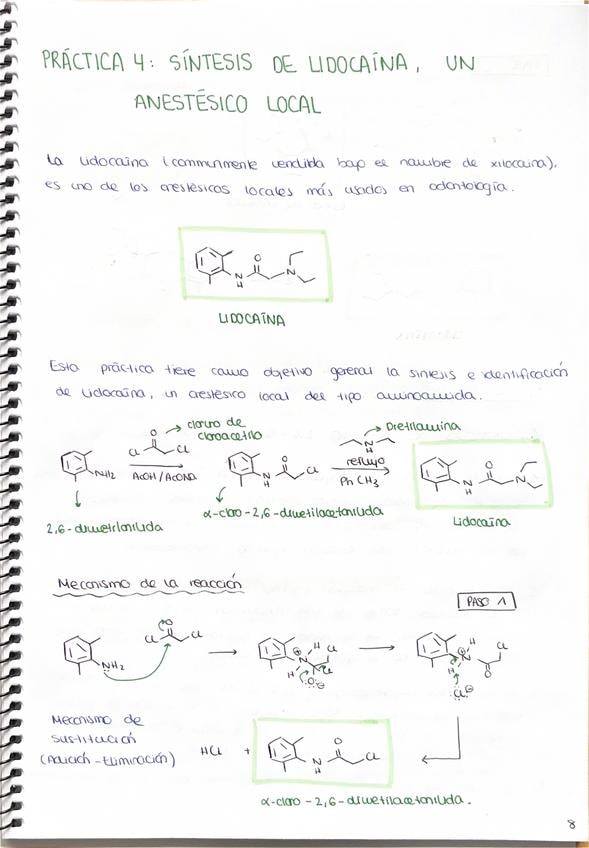 PRÁCTICA 4: SÍNTESIS DE LIDOCAÍNA, UN
ANESTÉSICO LOCAL
La lidocaína (commúnmente vendida bajo el nombre de xilocaína),
es uno de los anestésicos locales más usados en odontología.
O
N
H
N
LIDOCAÍNA
Esta práctica tiene como objetivo general la síntesis e identificación
de lidocaína, un anestésico local del tipo aminoamida.
cloruro de
cloroacetilo
Dietilamina
O
Cl
Cl
N
H
reflujo
NH2
AcOH/AcONa
N
H
O
Cl
PhCH3
N
H
O
N
2,6-dimetilanilida
α-cloro-2,6-dimetilacetanilida
Lidocaína
Mecanismo de la reacción
PASO 1
NH2
Cl
O
Cl
H
N
H
Cl
Cl
O
⊖
⊕
H
N
H
O
Cl
Cl
⊖
Mecanismo de
sustitución
(Adición-Eliminación)
HCl
+
N
H
O
Cl
α-cloro-2,6-dimetilacetanilida.
8